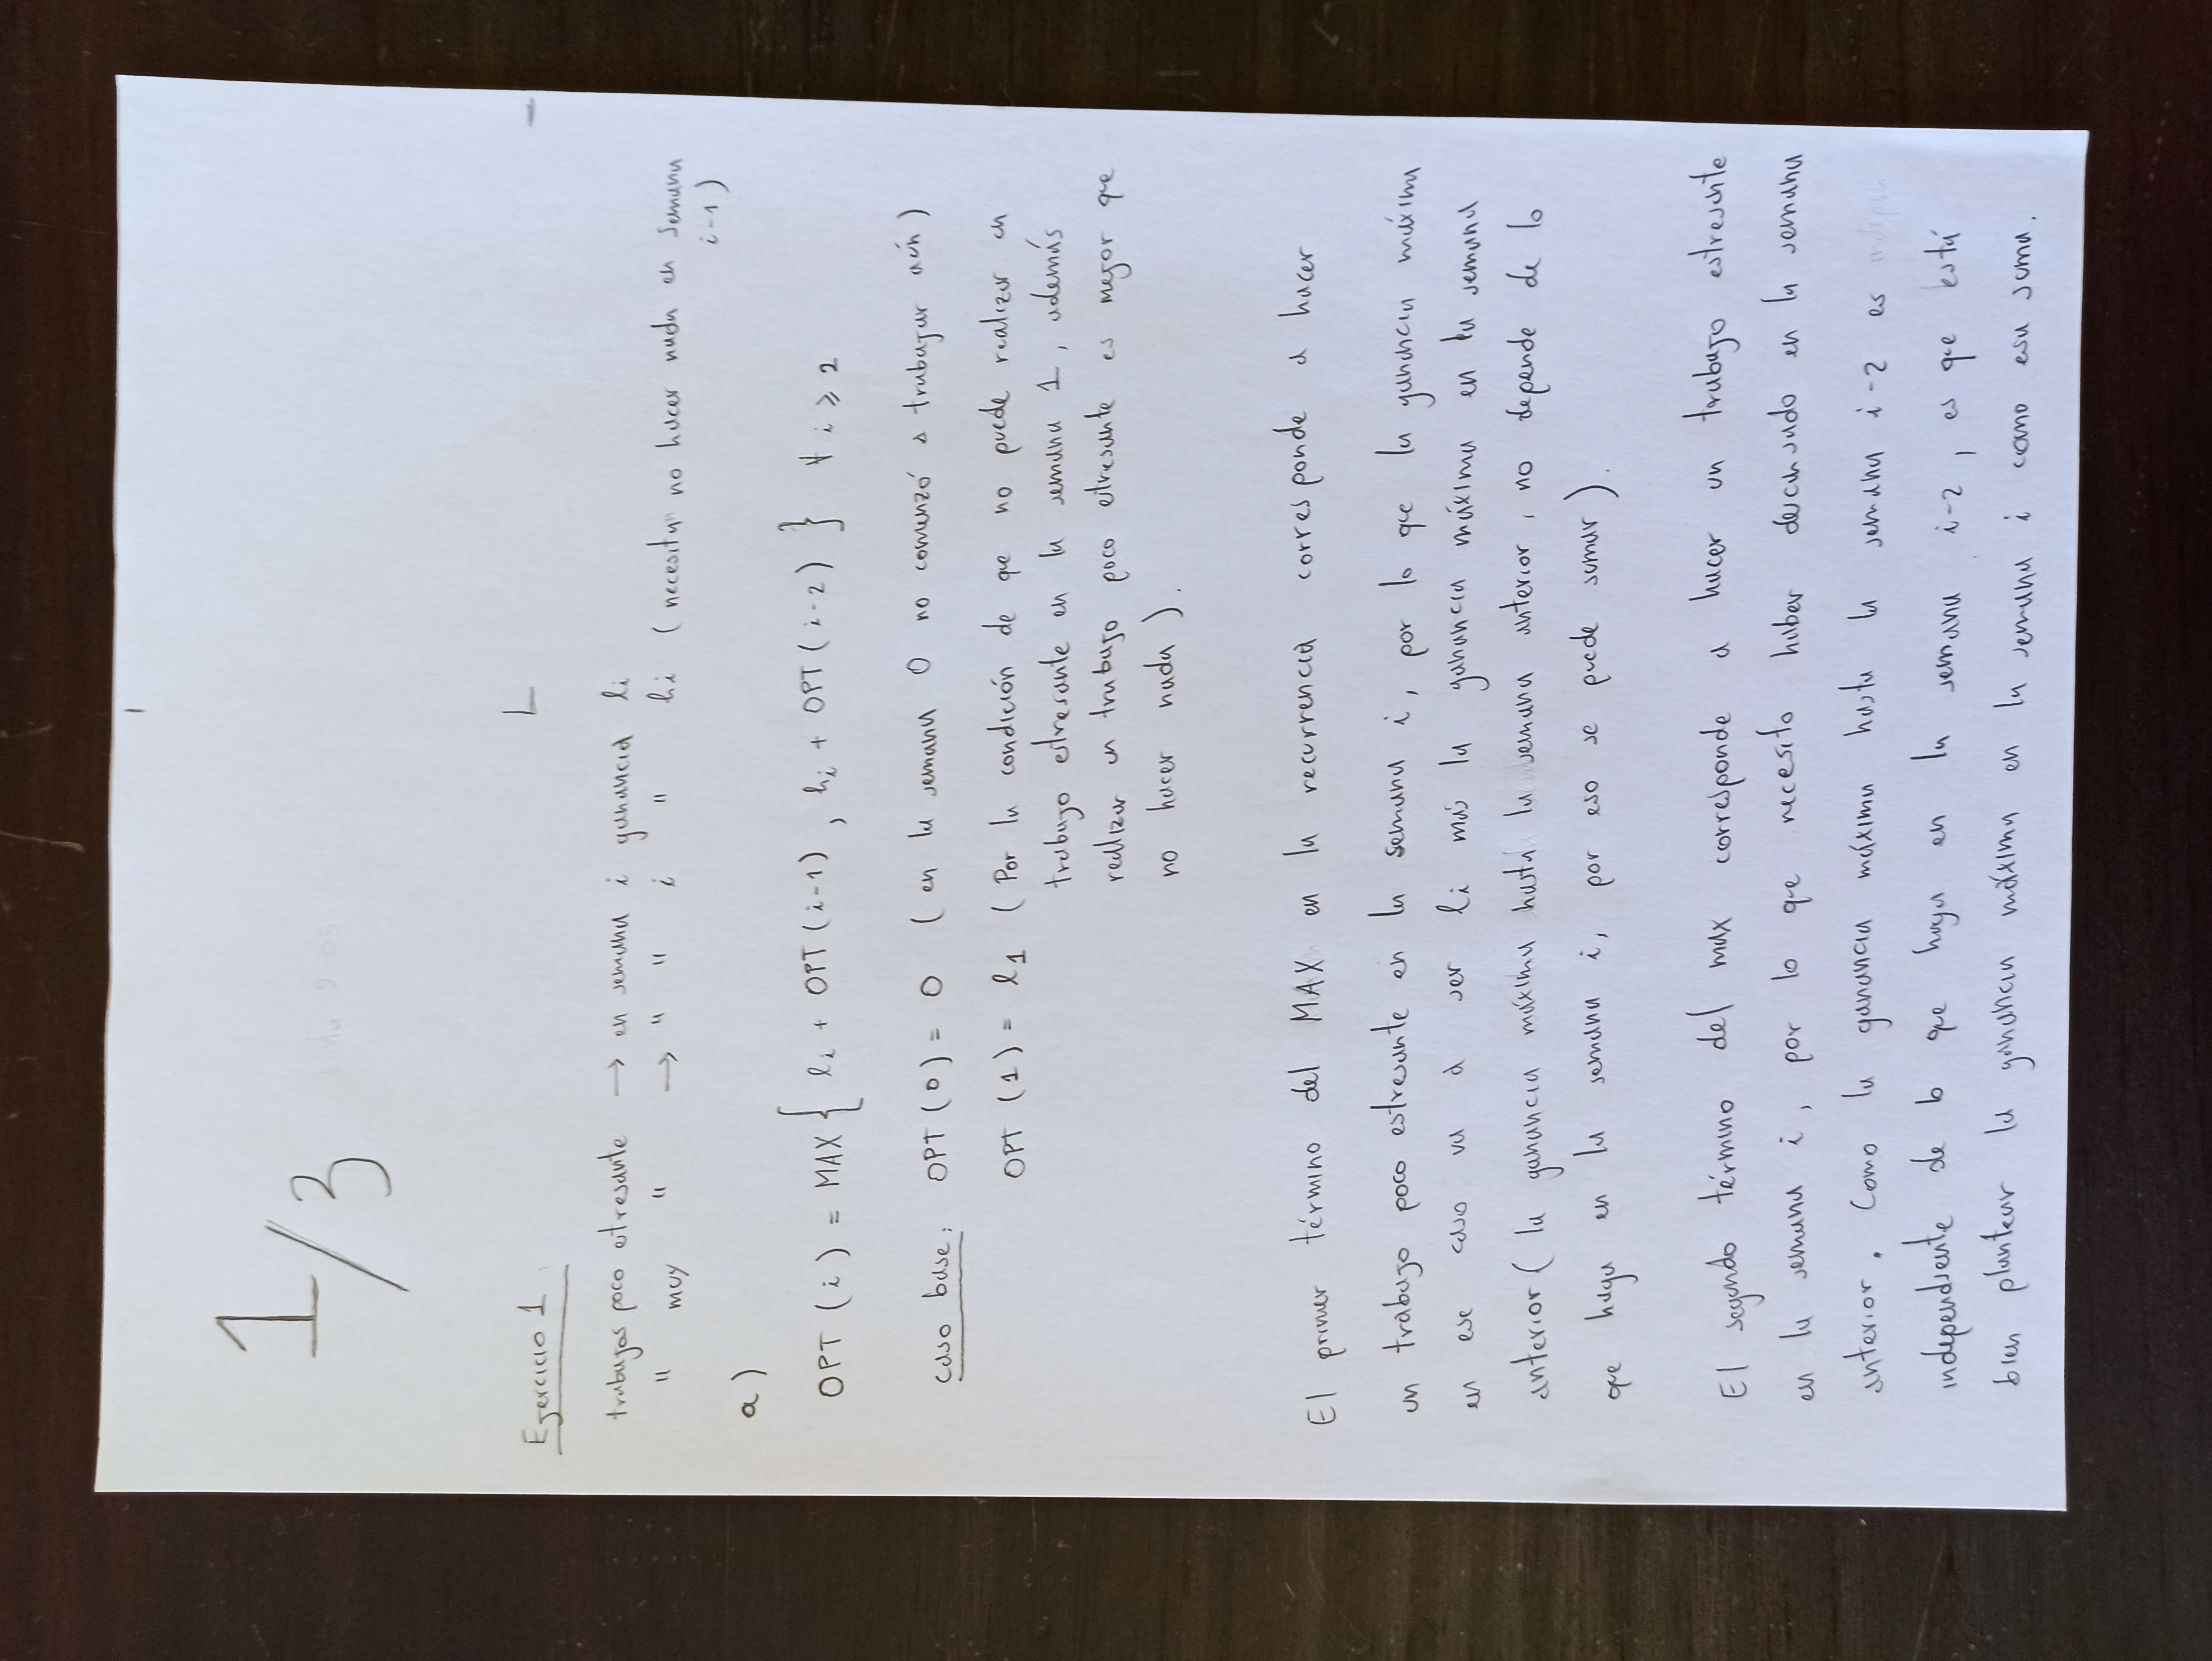 1/3
Ejercicio 1
trabajos poco etresante → en semana i ganancia li
" muy " → " " i " hi (necesita no hacer nada en semana
i-1)
a)
OPT (i) = MAX { li + OPT (i-1) , hi + OPT (i-2) } ∀ i ≥ 2
caso base: OPT (0) = 0 ( en la semana 0 no comenzó a trabajar aún )
OPT (1) = l1 ( Por la condición de que no puede realizar un
trabajo etresante en la semana 1, además
realizar un trabajo poco etresante es mejor que
no hacer nada ).
El primer término del MAX en la recurrencia corresponde a hacer
un trabajo poco estresante en la semana i, por lo que la ganancia máxima
en ese caso va a ser li más la ganancia máxima en la semana
anterior ( la ganancia máxima hasta la semana anterior, no depende de lo
que haga en la semana i, por eso se puede sumar ).
El segundo término del max corresponde a hacer un trabajo estresante
en la semana i, por lo que necesito haber descansado en la semana
anterior. Como la ganancia máxima hasta la semana i-2 es
independiente de lo que haga en la semana i-2, es que está
bien plantear la ganancia máxima en la semana i como esa suma.